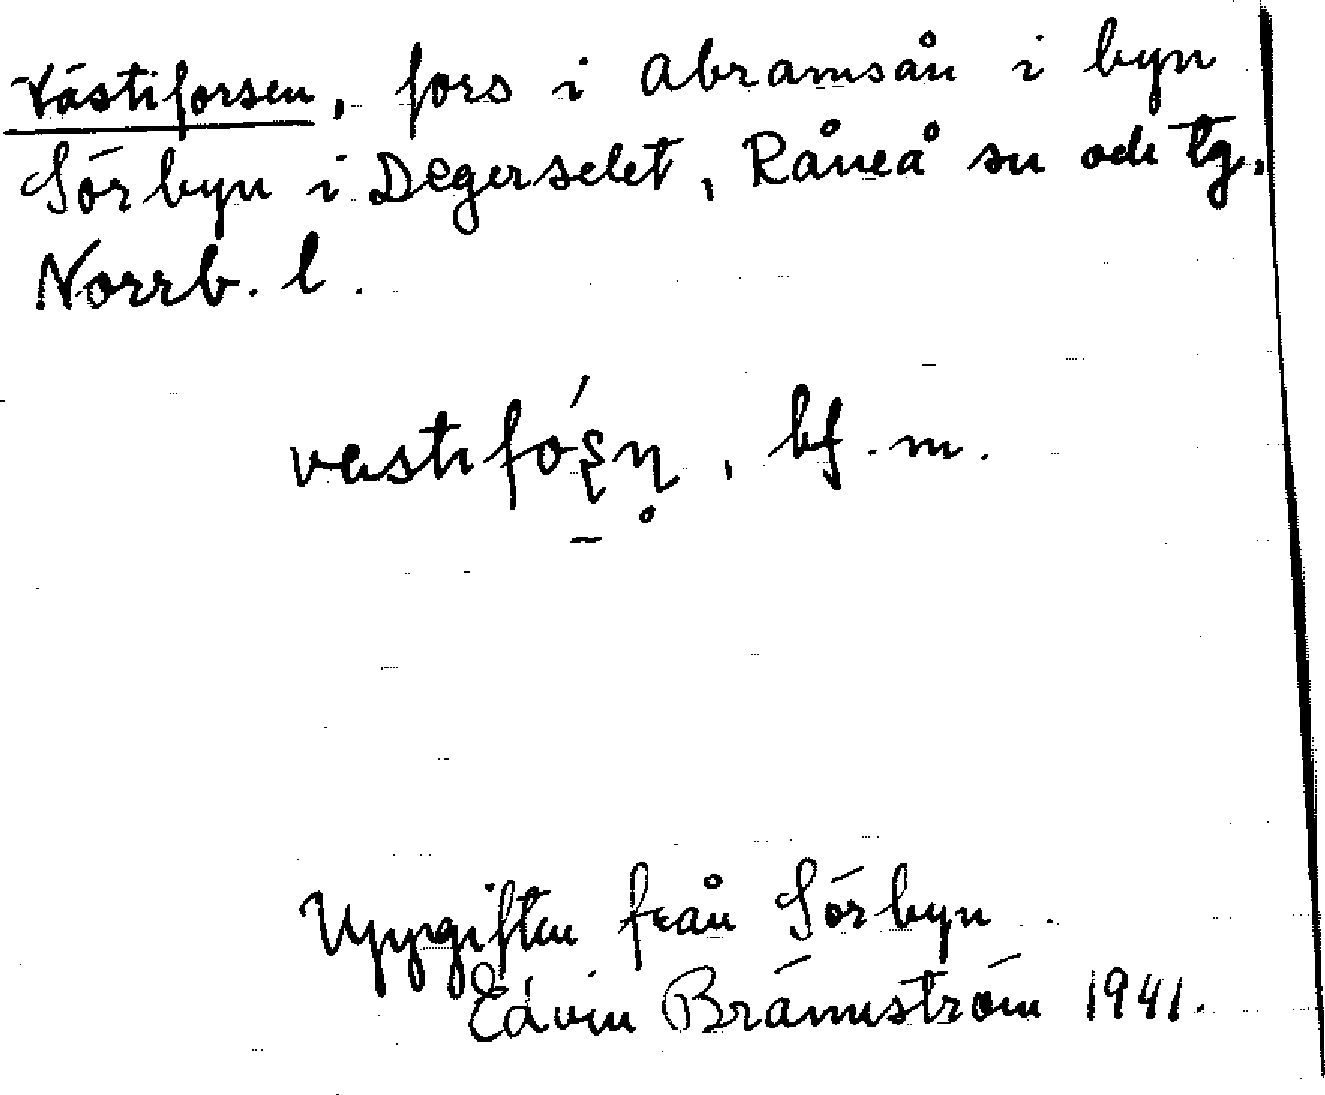 Västiforsen, fors i Abramsån i byn
Sörbyn i Degerselet, Råneå sn och tg,
Norrb. l.
vestifó̱ʂɳ̥, bf. m.
Uppgiften från Sörbyn
Edvin Brännström 1941.